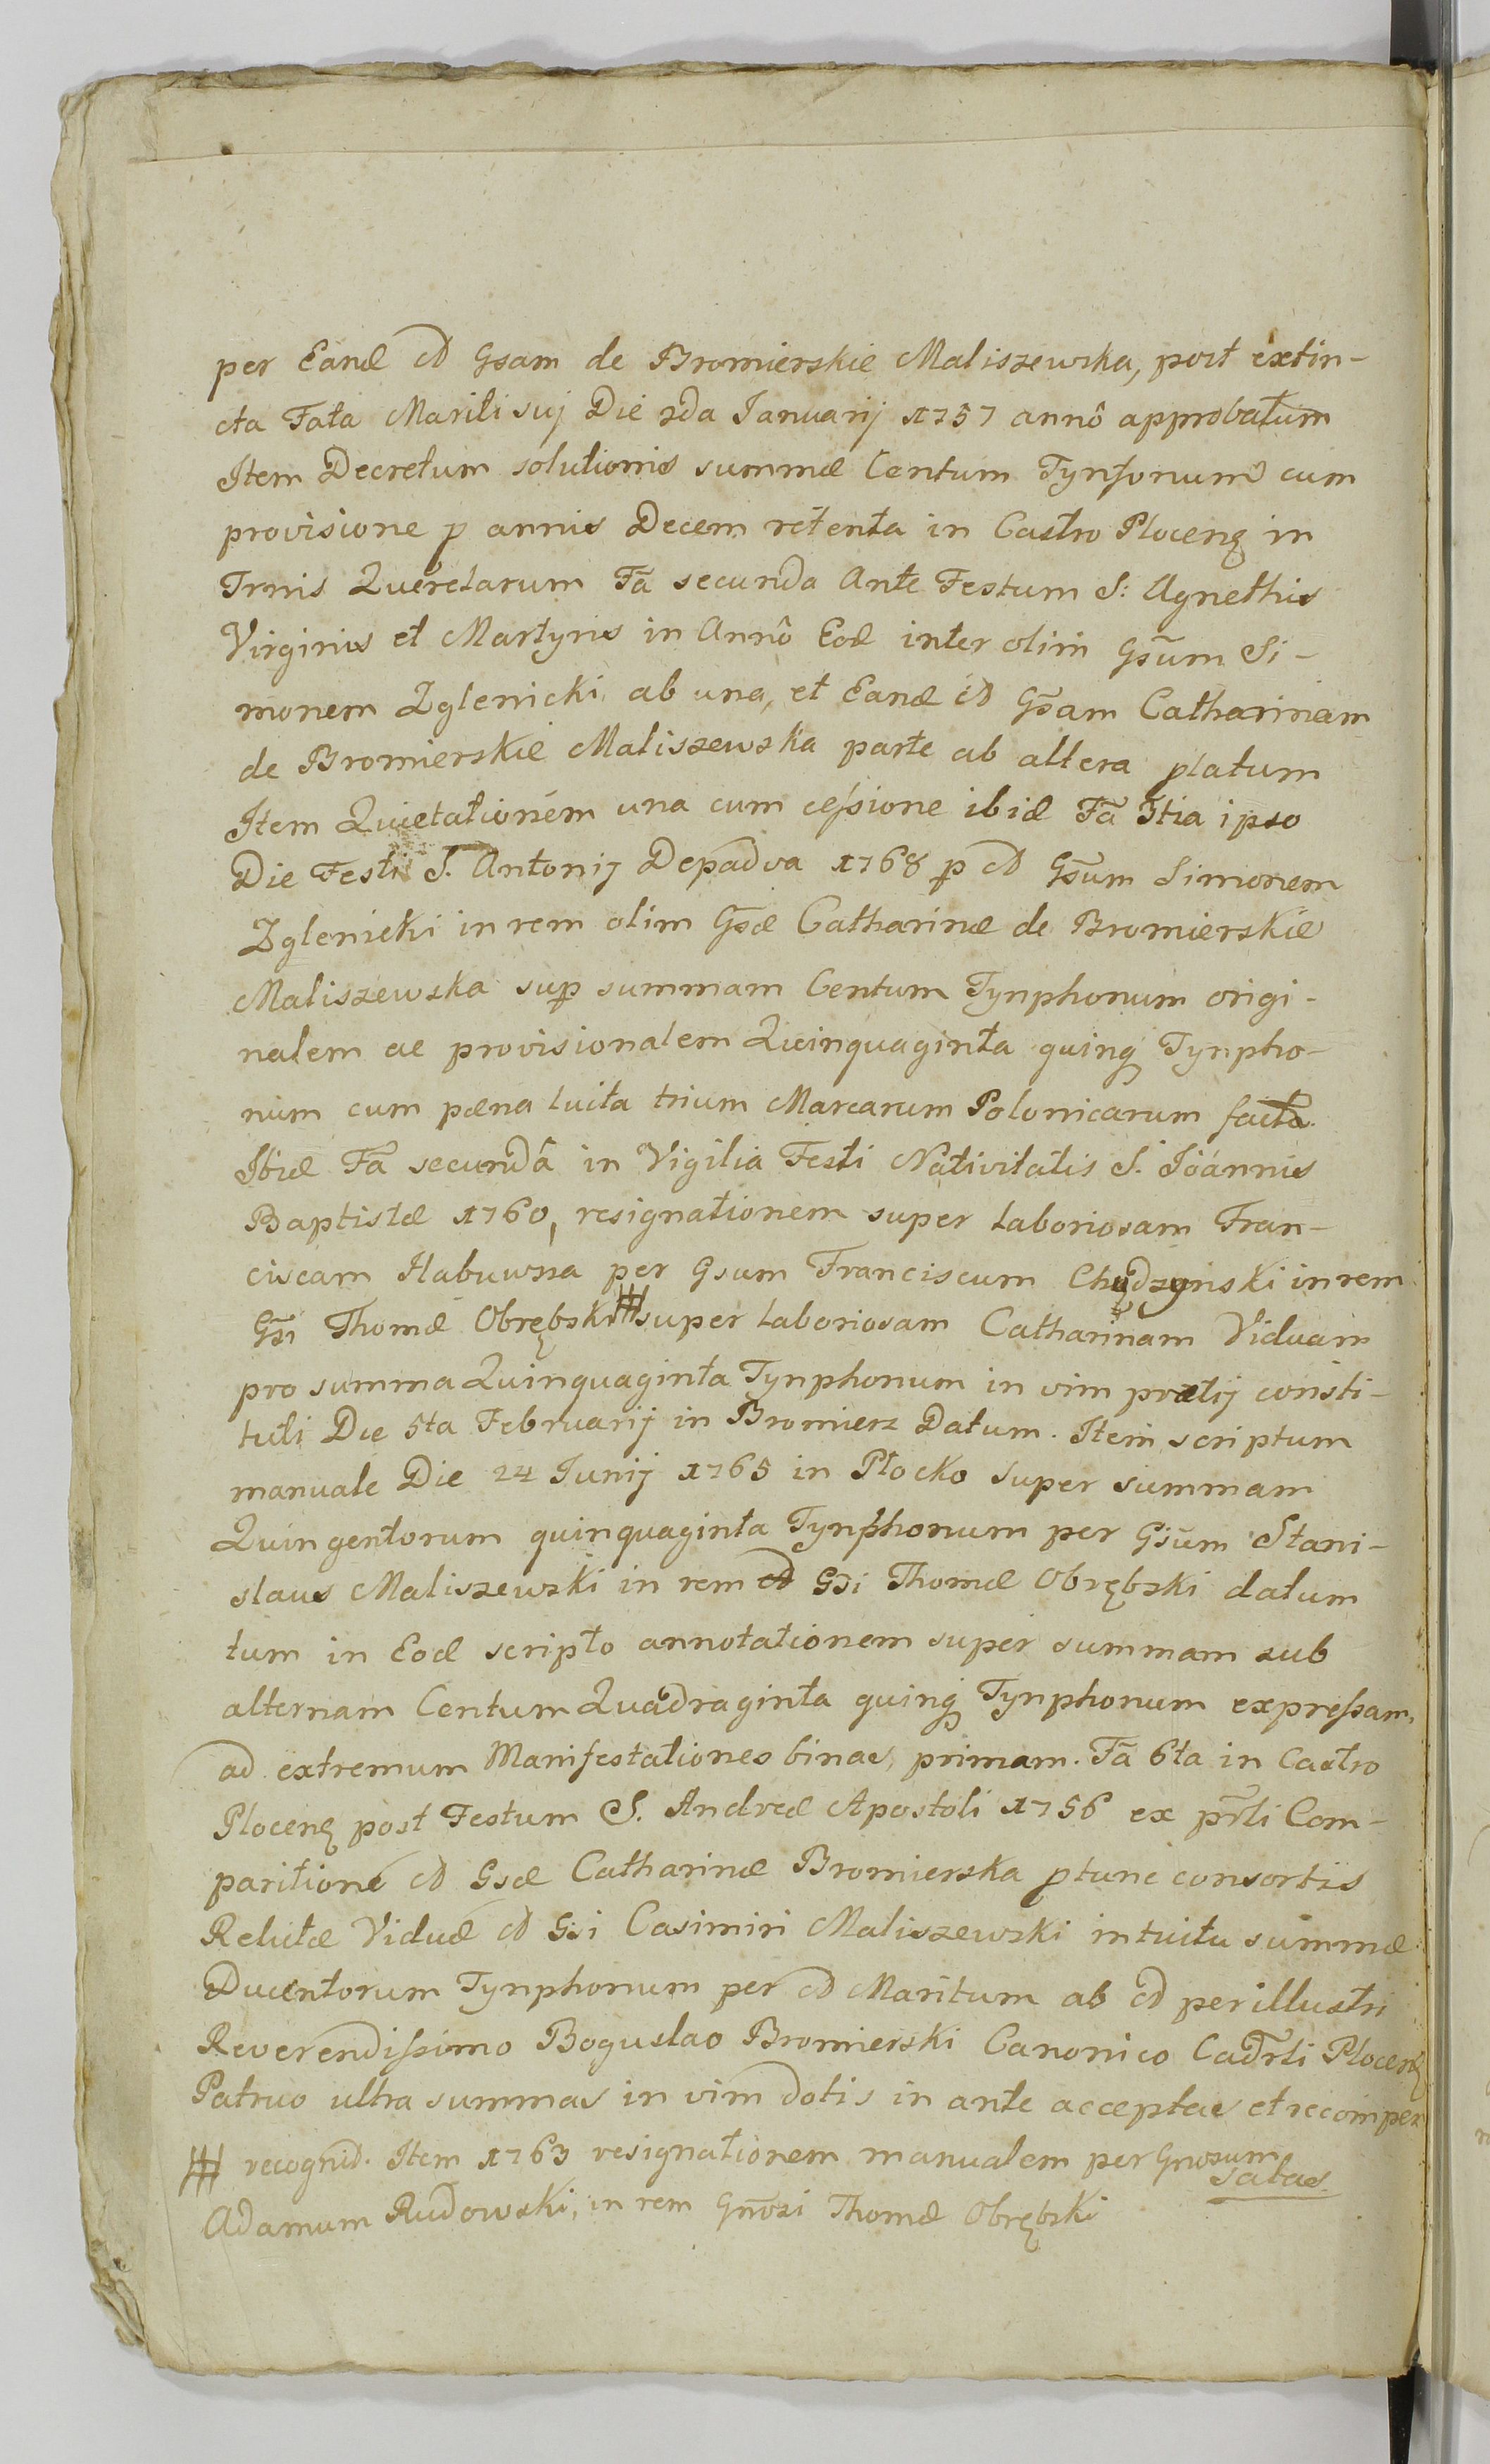 per Eand̄ od Gsam de Bromierskie Maliszewska, post extin-
cta Fata Mariti suj Die 2da Januarij 1757 annô approbatum
Item Decretum solutionis summæ Centum Tynfonum cum
provisione p annis Decem retenta in Castro Plocenę in
Trnis Querelarum Fā secunda Ante Festum S: Agnethis
Virginis et Martyris in Annô Eod inter olim Gsūm Si-
monem Zglenicki ab una, et Eand od Gs̄am Catharinam
de Bromierskie Maliszewska parte ab altera platum
Item Quietationem una cum cessione ibid Fā 3tia ipso
Die Festi S. Antonij Depadva 1768 p od Gsūm Simonem
Zglenicki in rem olim Gsæ Catharinæ de Bromierskie
Maliszewska sup summam Centum Tynphonum origi-
nalem ac provisionalem Quinquaginta quinq Tynpho-
num cum pæna luita trium Marcarum Polonicarum facta.
Ibid Fā secundâ in Vigilia Festi Nativitatis S. Joannis
Baptistæ 1760, resignationem super laboriosam Fran-
ciscam Habuwna per Gsum Franciscum Chudzynski in rem
Gsi Thomæ Obrębski # super laboriosam Catharinam Viduam
pro summa Quinquaginta Tynphonum in vim prætij consti-
tuti Die 5ta Februarij in Bromierz Datum. Item scriptum
manuale Die 24 Junij 1765 in Płocko super summam
Quingentorum quinquaginta Tynphonum per Gsūm Stani-
slaus Maliszewski in rem od Gsi Thomæ Obrębski datum
tum in Eod scripto annotationem super summam sub
alternam Centum Quadraginta quinq Tynphonum expressam,
ad extremum Manifestationes binas, primam. Fā 6ta in Castro
Plocenę post Festum S. Andreæ Apostoli 1756 ex prs̄ti Com-
paritione od Gsæ Catharinæ Bromierska ptunc consortis
Relictæ Viduæ od Gsi Casimiri Maliszewski intuitu summæ
Ducentorum Tynphonum per od Maritum ab od perillustri
Reverendissimo Boguslao Bromierski Canonico Cadrli Plocenę
Patruo ultra summas in vim dotis in ante acceptas et recompen
satas
# recognid. Item 1763 resignationem manualem per Gnosum
Adamum Rudowski, in rem Gnosi Thomæ Obrębski